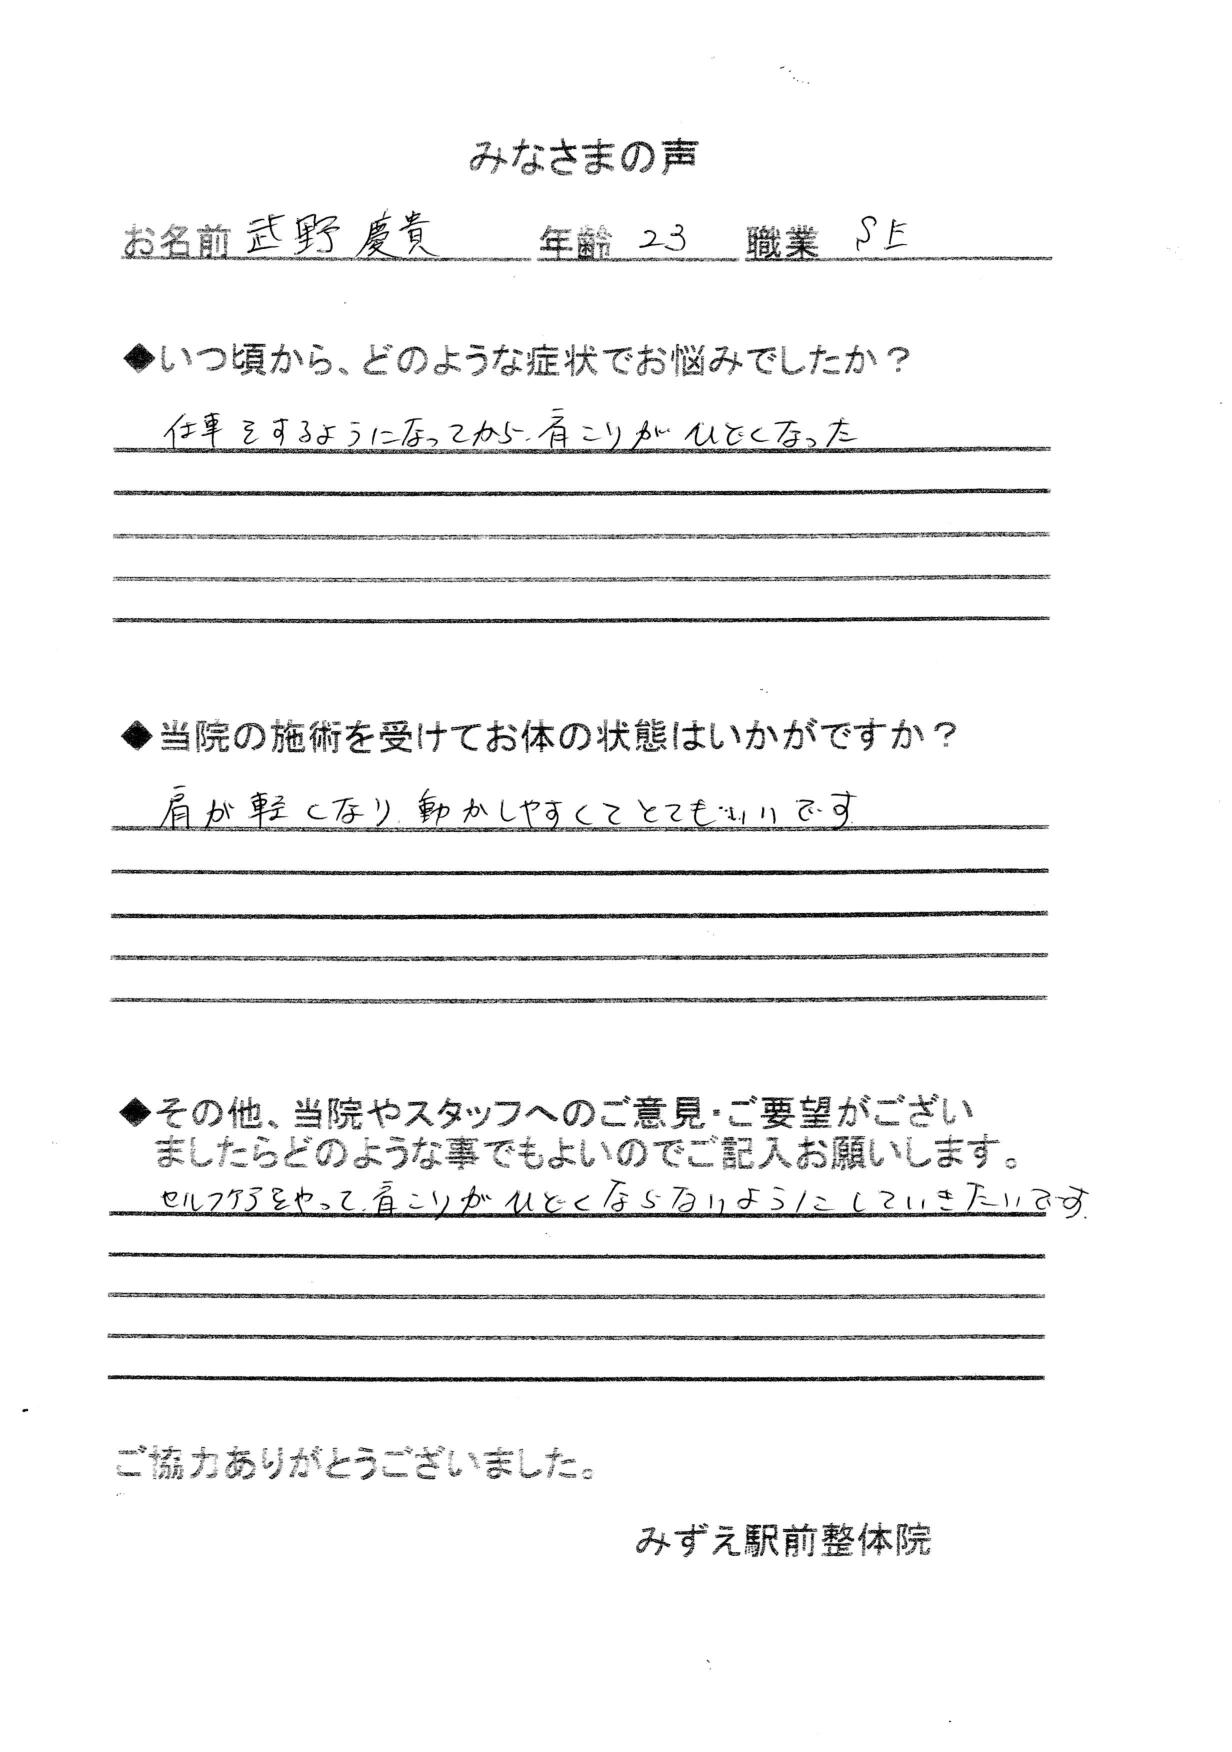 みなさまの声
お名前 武野 慶貴 年齢 23 職業 SE
◆いつ頃から、どのような症状でお悩みでしたか？
仕事をするようになってから、肩こりがひどくなった
◆当院の施術を受けてお体の状態はいかがですか？
肩が軽くなり、動かしやすくてとてもいいです
◆その他、当院やスタッフへのご意見・ご要望がござい
ましたらどのような事でもよいのでご記入お願いします。
セルフケアをやって、肩こりがひどくならないようにしていきたいです。
ご協力ありがとうございました。
みずえ駅前整体院